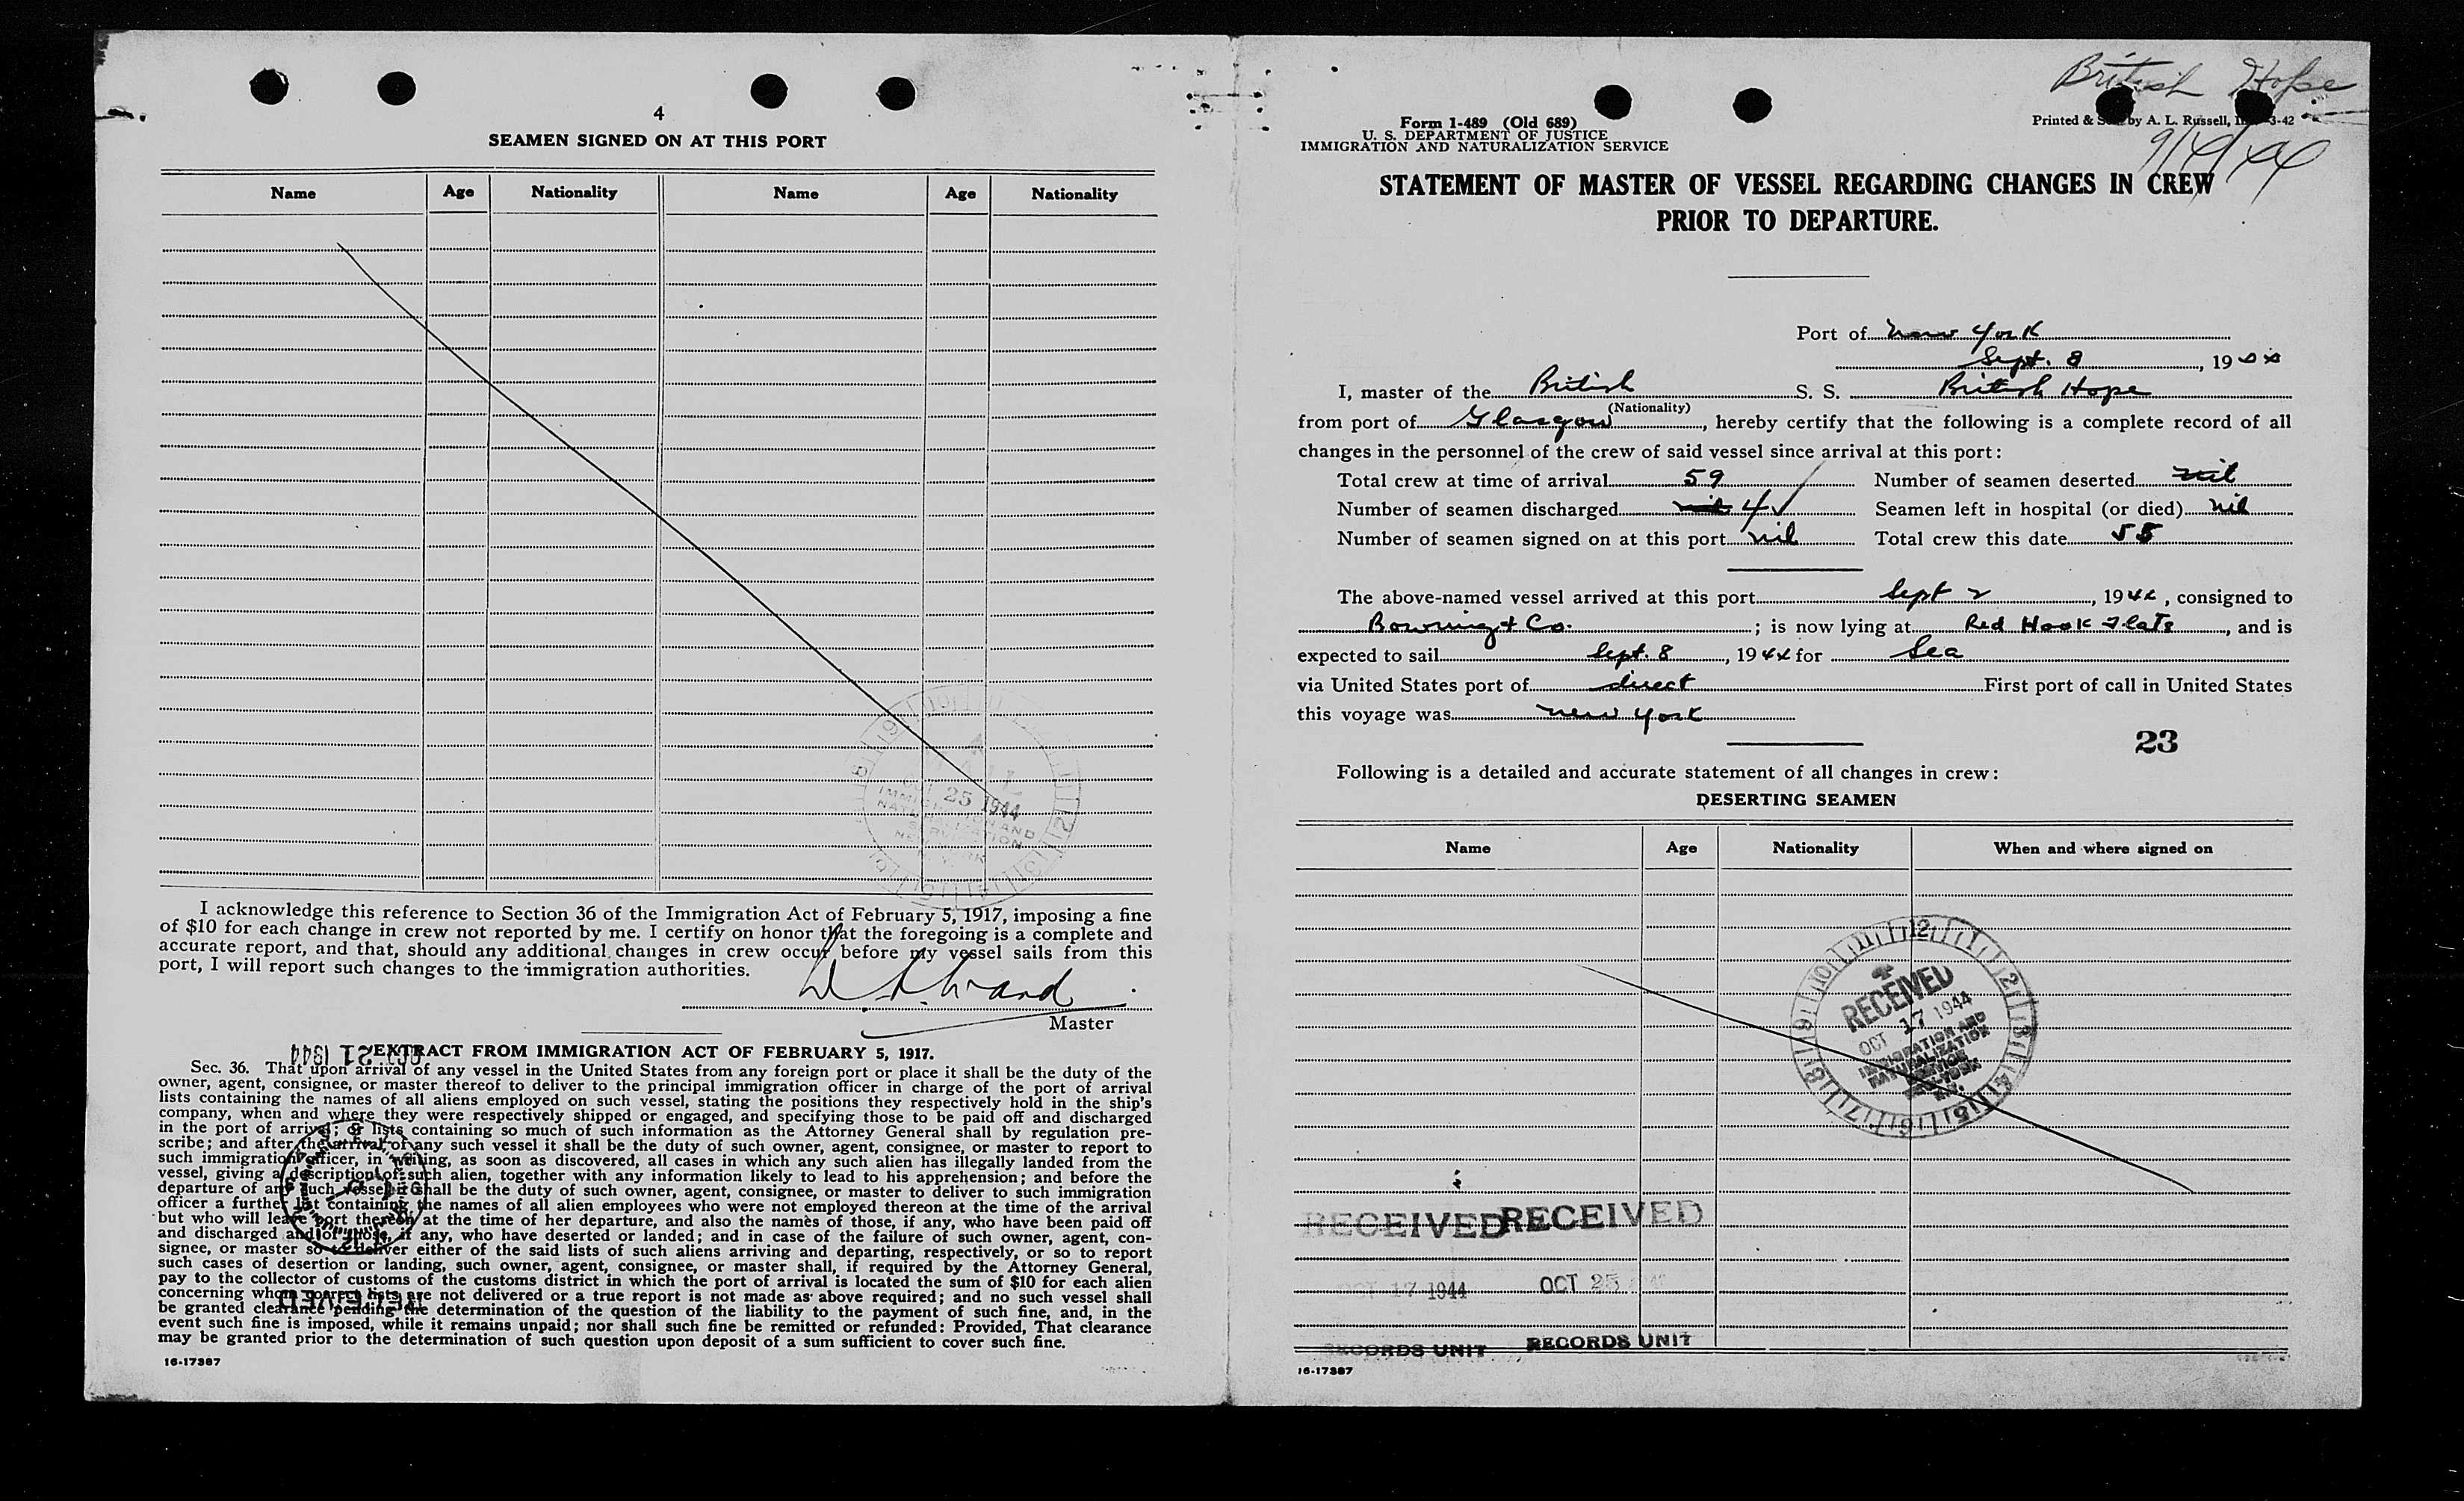 4
SEAMEN SIGNED ON AT THIS PORT
Name Age Nationality Name Age Nationality
25 1944
IMMIGRATION AND
NATURALIZATION
SERVICE
NEW YORK
I acknowledge this reference to Section 36 of the Immigration Act of February 5, 1917, imposing a fine
of $10 for each change in crew not reported by me. I certify on honor that the foregoing is a complete and
accurate report, and that, should any additional changes in crew occur before my vessel sails from this
port, I will report such changes to the immigration authorities.
Ward
Master
OCT 21 1944
EXTRACT FROM IMMIGRATION ACT OF FEBRUARY 5, 1917.
Sec. 36. That upon arrival of any vessel in the United States from any foreign port or place it shall be the duty of the
owner, agent, consignee, or master thereof to deliver to the principal immigration officer in charge of the port of arrival
lists containing the names of all aliens employed on such vessel, stating the positions they respectively hold in the ship's
company, when and where they were respectively shipped or engaged, and specifying those to be paid off and discharged
in the port of arrival; or lists containing so much of such information as the Attorney General shall by regulation pre-
scribe; and after the arrival of any such vessel it shall be the duty of such owner, agent, consignee, or master to report to
such immigration officer, in writing, as soon as discovered, all cases in which any such alien has illegally landed from the
vessel, giving a description of such alien, together with any information likely to lead to his apprehension; and before the
departure of any such vessel it shall be the duty of such owner, agent, consignee, or master to deliver to such immigration
officer a further list containing the names of all alien employees who were not employed thereon at the time of the arrival
but who will leave port thereon at the time of her departure, and also the names of those, if any, who have been paid off
and discharged and of those, if any, who have deserted or landed; and in case of the failure of such owner, agent, con-
signee, or master so to deliver either of the said lists of such aliens arriving and departing, respectively, or so to report
such cases of desertion or landing, such owner, agent, consignee, or master shall, if required by the Attorney General,
pay to the collector of customs of the customs district in which the port of arrival is located the sum of $10 for each alien
concerning whom correct lists are not delivered or a true report is not made as above required; and no such vessel shall
be granted clearance pending the determination of the question of the liability to the payment of such fine, and, in the
event such fine is imposed, while it remains unpaid; nor shall such fine be remitted or refunded: Provided, That clearance
may be granted prior to the determination of such question upon deposit of a sum sufficient to cover such fine.
RECEIVED
16-17387
British Hope
Form 1-489 (Old 689)
U. S. DEPARTMENT OF JUSTICE
IMMIGRATION AND NATURALIZATION SERVICE
Printed & by A. L. Russell, 3-42
9/4/44
STATEMENT OF MASTER OF VESSEL REGARDING CHANGES IN CREW
PRIOR TO DEPARTURE.
Port of New York
Sept. 8, 1944
I, master of the British S. S. British Hope
(Nationality)
from port of Glasgow, hereby certify that the following is a complete record of all
changes in the personnel of the crew of said vessel since arrival at this port:
Total crew at time of arrival 59 Number of seamen deserted nil
Number of seamen discharged nil 4 Seamen left in hospital (or died) nil
Number of seamen signed on at this port nil Total crew this date 55
The above-named vessel arrived at this port Sept 2, 1944, consigned to
Bowring & Co.; is now lying at Red Hook Flats, and is
expected to sail Sept. 8, 1944 for Sea
via United States port of direct First port of call in United States
this voyage was New York
23
Following is a detailed and accurate statement of all changes in crew:
DESERTING SEAMEN
Name Age Nationality When and where signed on
RECEIVED
OCT 17 1944
IMMIGRATION AND
NATURALIZATION
SERVICE
NEW YORK
N.Y.
RECEIVED RECEIVED
OCT 17 1944 OCT 25
RECORDS UNIT RECORDS UNIT
16-17387